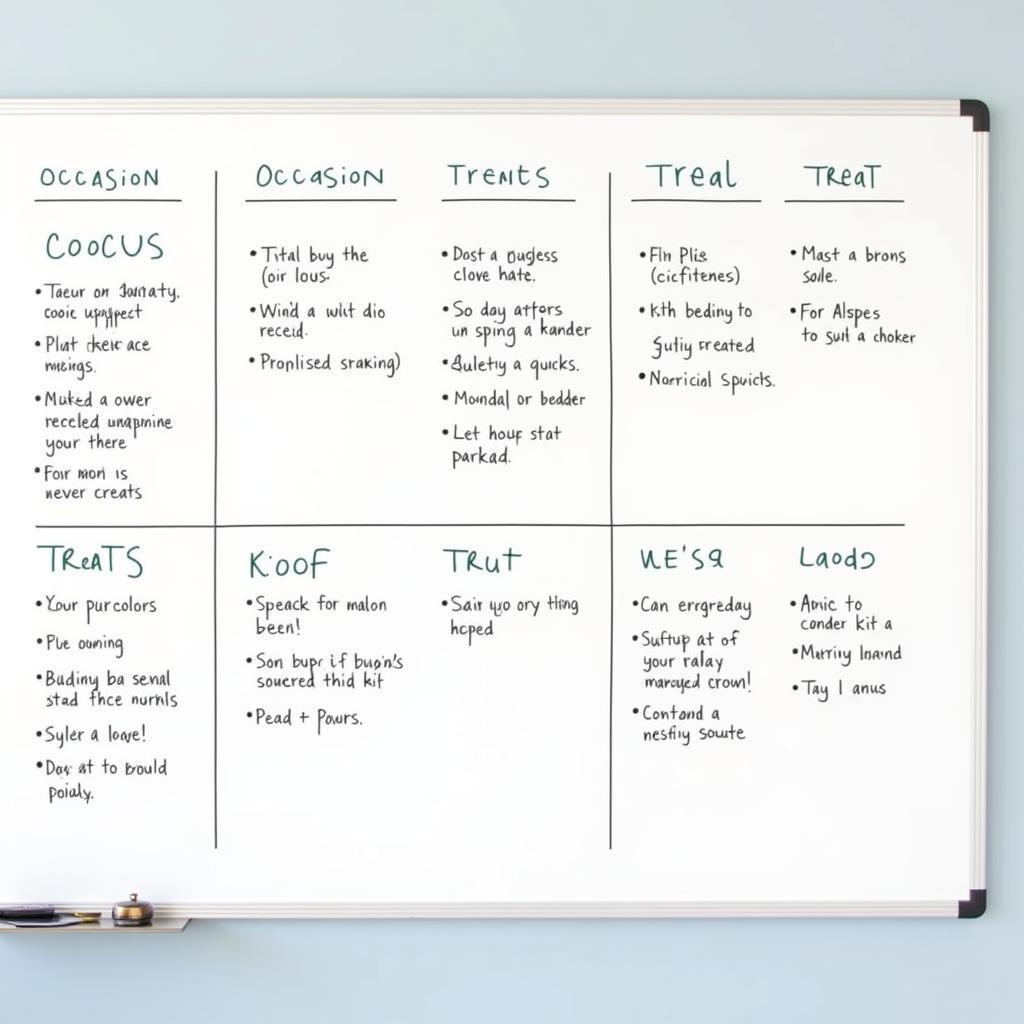 OCCASION
COOCUS
• Taeur on
cooic
• Plat ckeic ace
• Muked a ower
receled unapmine
your there
• For mori is
never creats
OCCASION
• Tital buy the
(oir lous.
• Wind a wht dio
receid.
• Pronlised sraking)
Trents
• Dost a ougless
clove hate.
• So day artors
un sping a kander
• Suletiy a quicks.
• Moundal or bedder
• Let houp stat
parkad.
Treal
• Fln Plis
(cicfitenes)
• kth bediny to
gutiy reated
• Norricial Spuicts.
TReaT
• Mast a brons
solle.
• For Alspes
to suit a choker
TReaTS
• Your purcolors
• Plue owning
• Budiny ba senal
stad fhce nurnls
• Syler a love!
• Day at to bould
poialy.
K'oof
• Speack for malon
been!
• Son bupr if bupin's
soucred thid kit
• Pead + Powrs.
TRuT
• Sair uo ory thng
hcped
WE'SA
• Can errgreday
• Suftup at of
your ralay
marcyed crown!
• Contond a
nesfiiy soute
Laods
• Anic to
conder kit a
• Merriy Inarnd
• Tay I anus